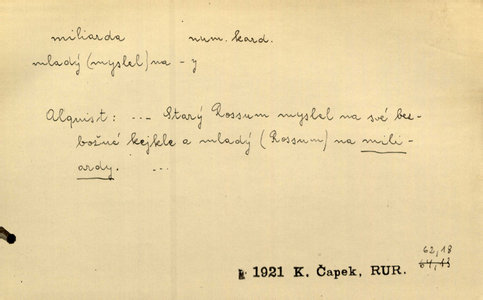 miliarda num. kard.
mladý (myslel) na -y
Alquist: ... Starý Rossum myslel na své bez-
božné kejkle a mladý (Rossum) na mili-
ardy. ...
62,18
64,13
1921 K. Čapek, RUR.